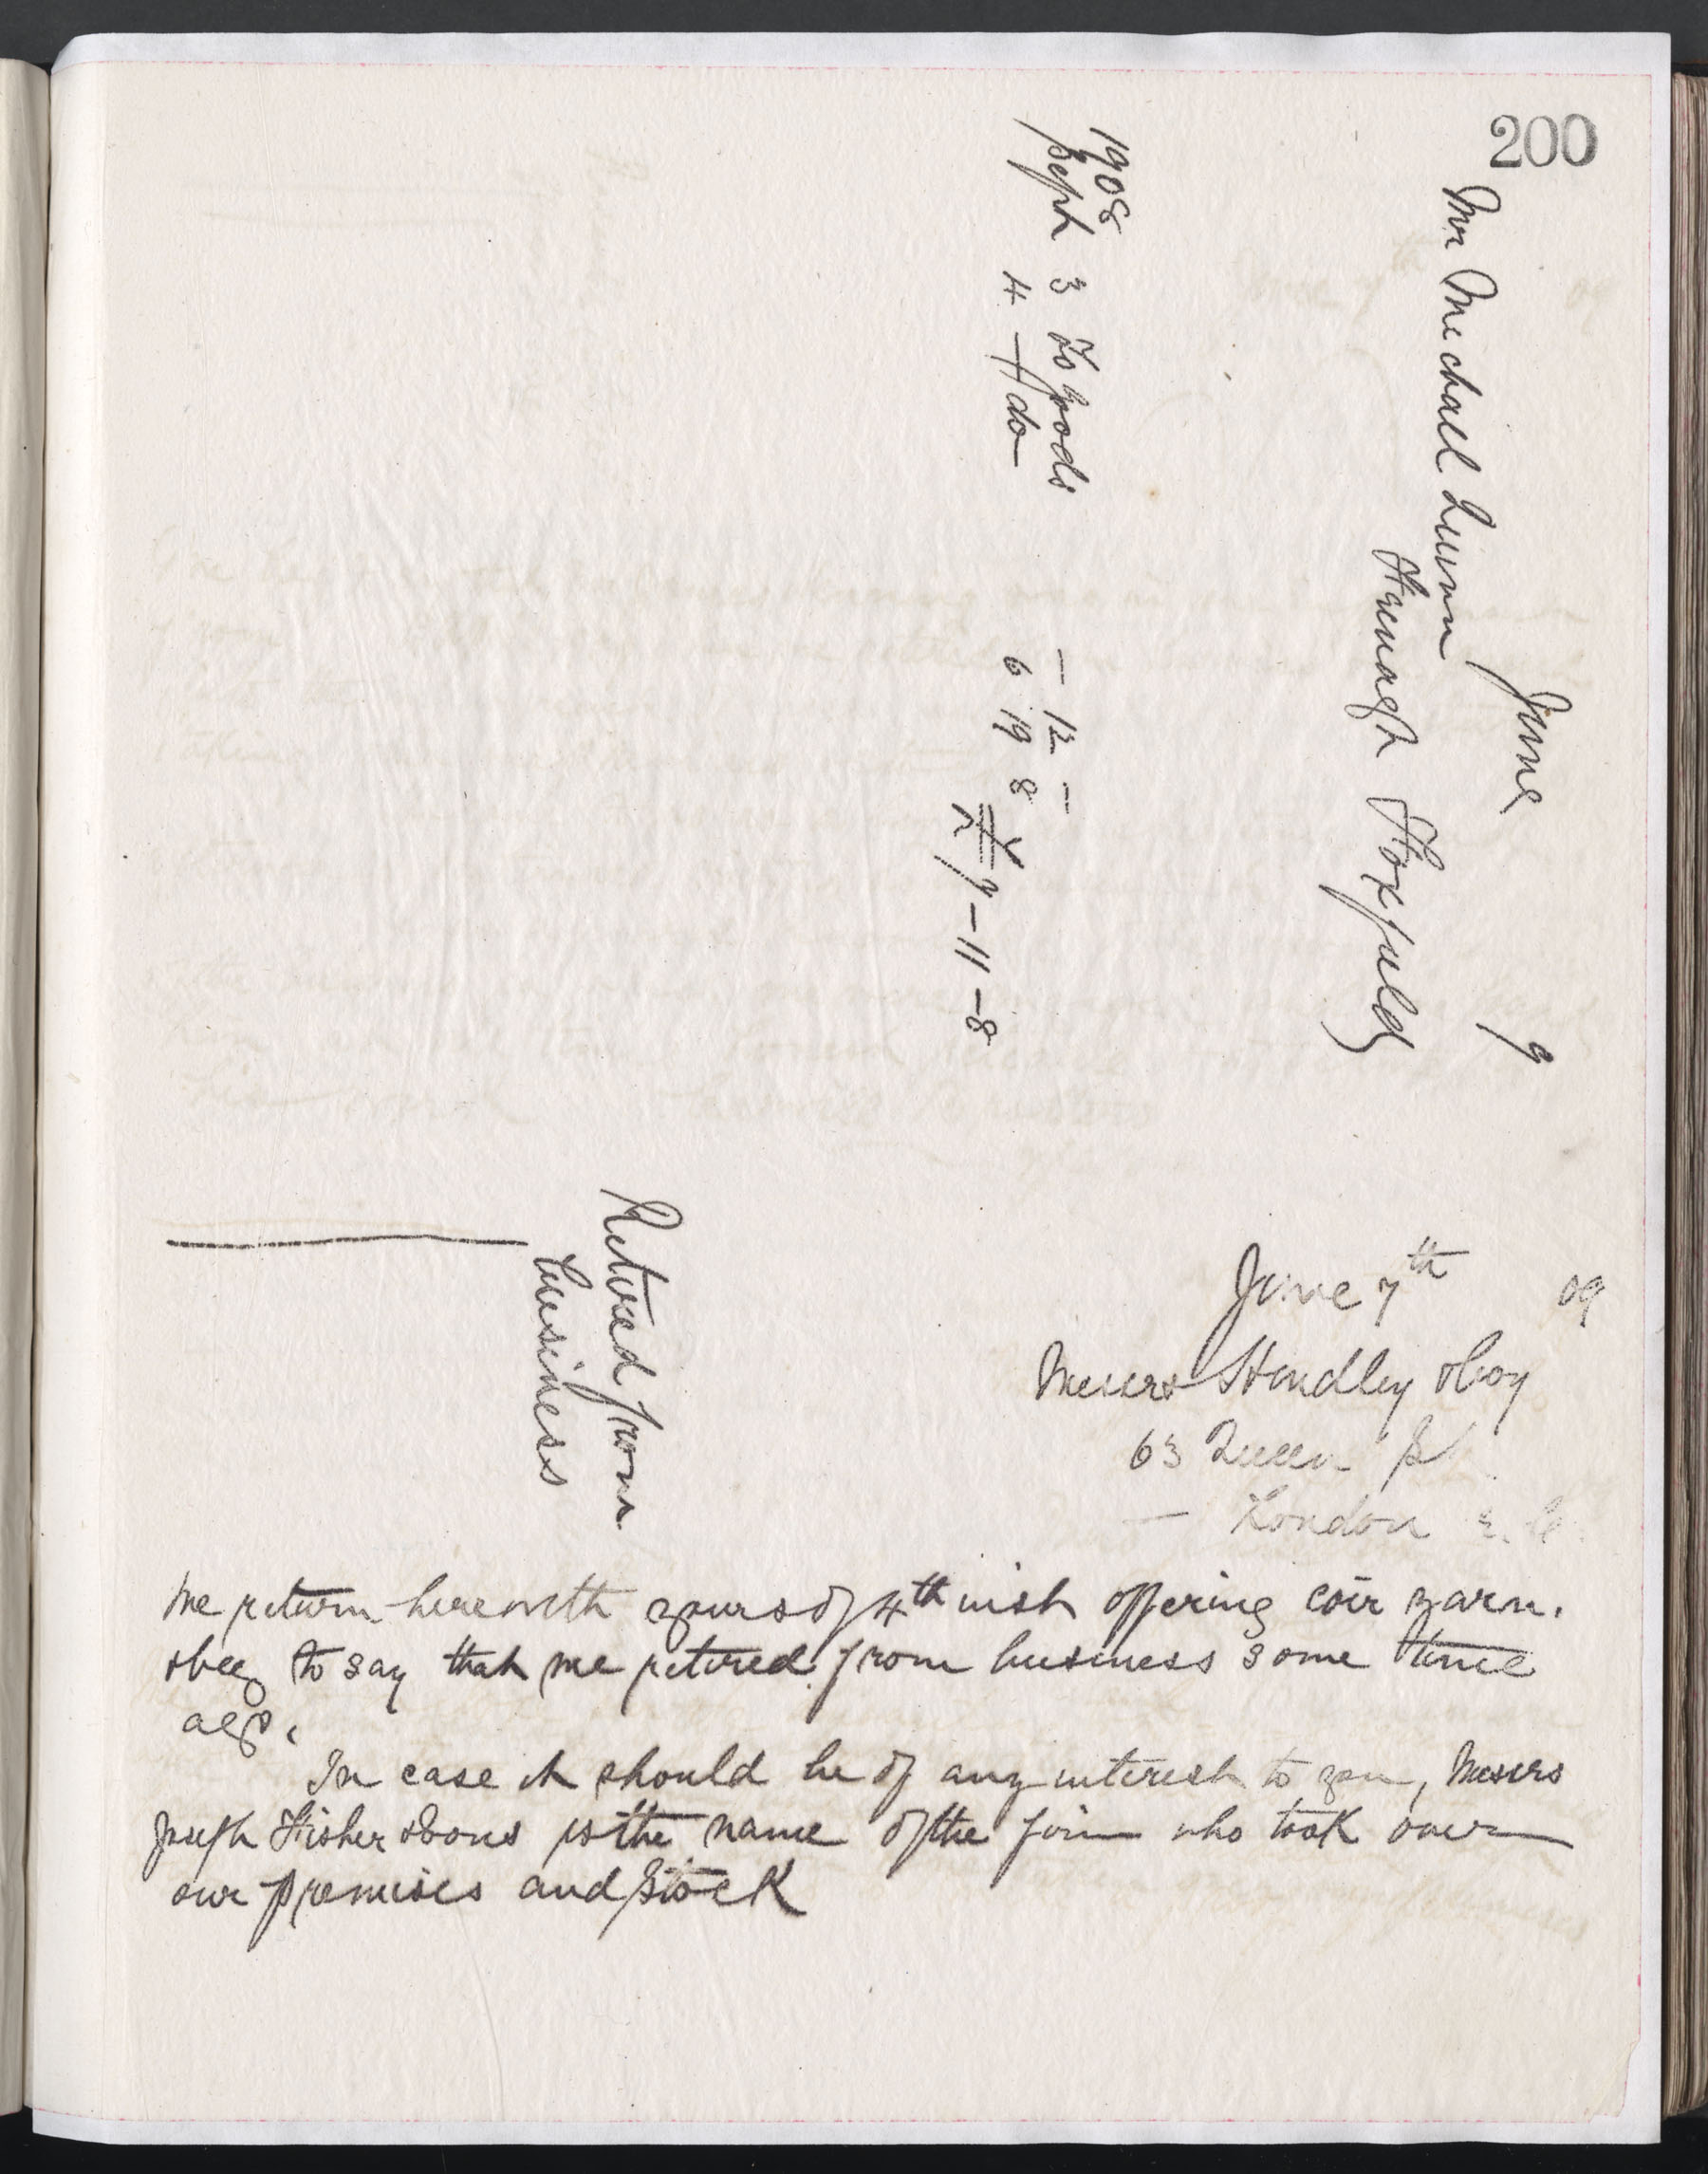 200
June 9
Mr Michael Quinn
Foxfield
1908
Sept 3 To Goods — 12 —
4 — do — 6 19 8
£7-11-8
June 7th 09
Messrs Hindley & Coy
63 Queen St
— London E.C.
Retired from
business
We return herewith yours of 4th inst offering coir yarn.
& beg to say that we retired from business some time
ago.
In case it should be of any interest to you, Messrs
Fisher & Sons is the name of the firm who took over
our premises and Stock